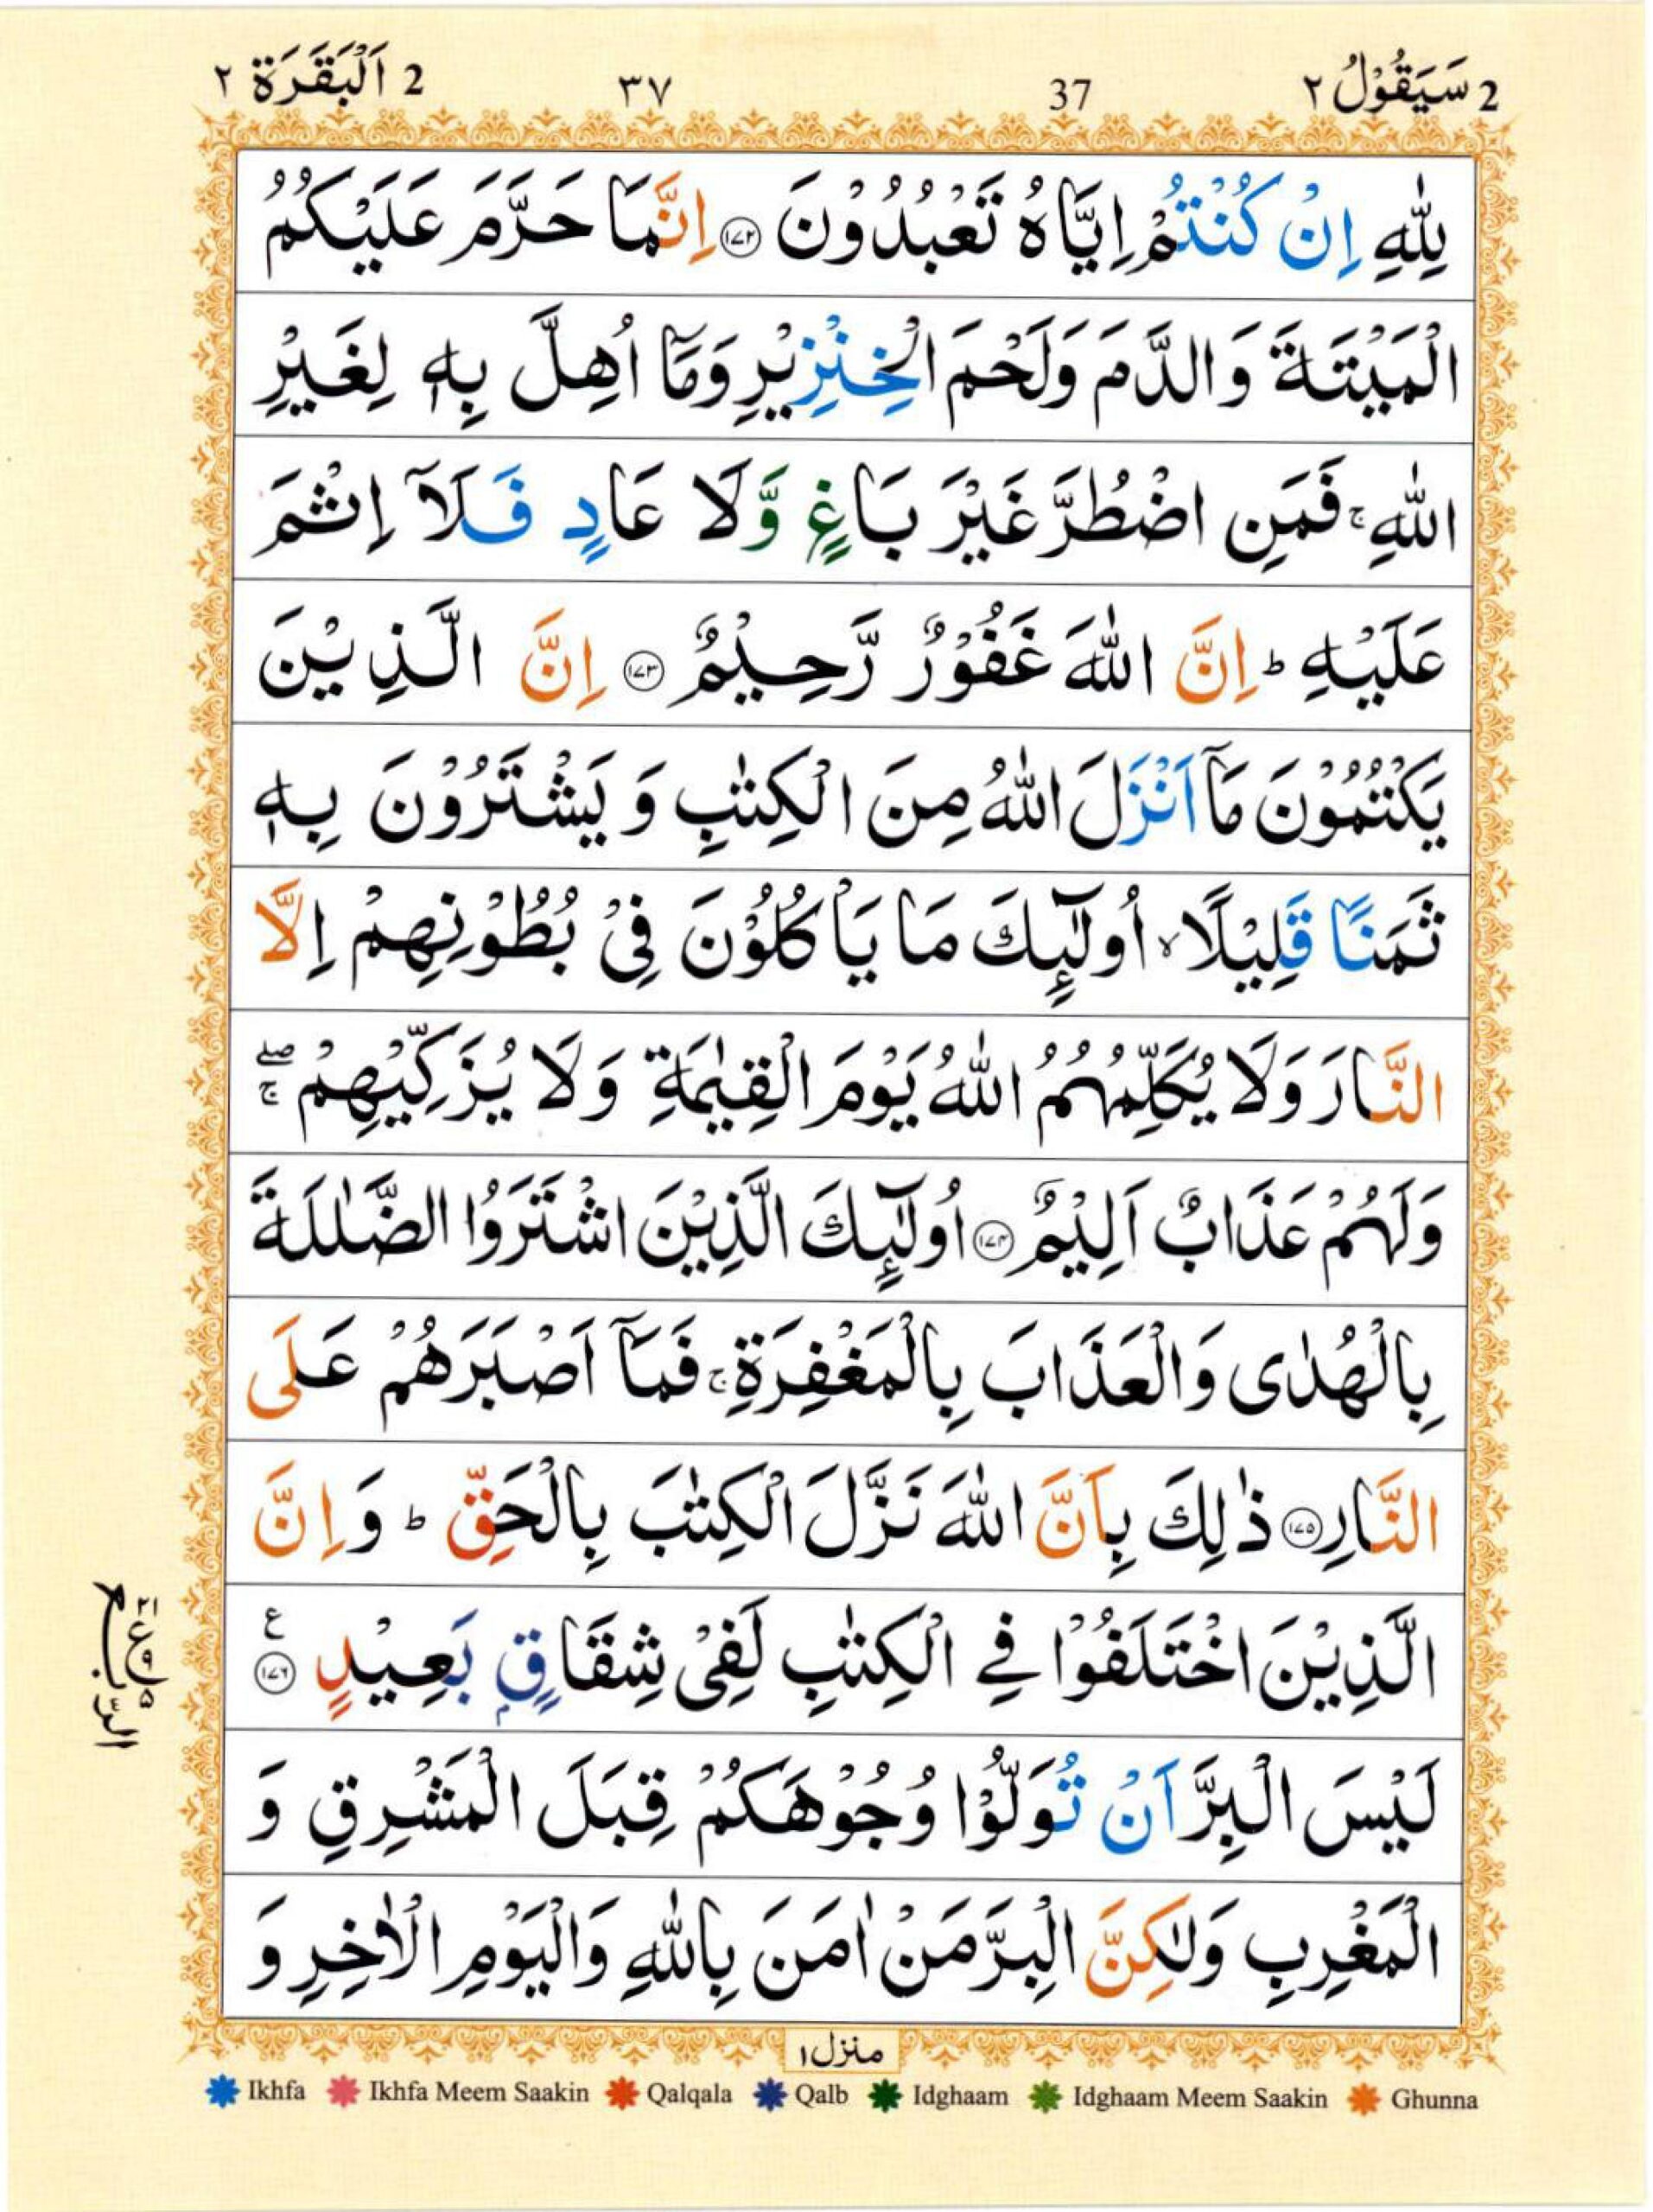 2 سَيَقُوْلُ ٢ 37 ٣٧ 2 اَلْبَقَرَة ٢
لِلّٰهِ اِنْ كُنْتُمْ اِيَّاهُ تَعْبُدُوْنَ ۝١٧٢ اِنَّمَا حَرَّمَ عَلَيْكُمُ
الْمَيْتَةَ وَالدَّمَ وَلَحْمَ الْخِنْزِيْرِ وَمَآ اُهِلَّ بِهٖ لِغَيْرِ
اللّٰهِ ۚ فَمَنِ اضْطُرَّ غَيْرَ بَاغٍ وَّلَا عَادٍ فَلَآ اِثْمَ
عَلَيْهِ ؕ اِنَّ اللّٰهَ غَفُوْرٌ رَّحِيْمٌ ۝١٧٣ اِنَّ الَّذِيْنَ
يَكْتُمُوْنَ مَآ اَنْزَلَ اللّٰهُ مِنَ الْكِتٰبِ وَيَشْتَرُوْنَ بِهٖ
ثَمَنًا قَلِيْلًا ۙ اُولٰٓئِكَ مَا يَاْكُلُوْنَ فِيْ بُطُوْنِهِمْ اِلَّا
النَّارَ وَلَا يُكَلِّمُهُمُ اللّٰهُ يَوْمَ الْقِيٰمَةِ وَلَا يُزَكِّيْهِمْ ۖۚ
وَلَهُمْ عَذَابٌ اَلِيْمٌ ۝١٧٤ اُولٰٓئِكَ الَّذِيْنَ اشْتَرَوُا الضَّلٰلَةَ
بِالْهُدٰى وَالْعَذَابَ بِالْمَغْفِرَةِ ۚ فَمَآ اَصْبَرَهُمْ عَلَى
النَّارِ ۝١٧٥ ذٰلِكَ بِاَنَّ اللّٰهَ نَزَّلَ الْكِتٰبَ بِالْحَقِّ ؕ وَاِنَّ
الَّذِيْنَ اخْتَلَفُوْا فِي الْكِتٰبِ لَفِيْ شِقَاقٍۭ بَعِيْدٍ ۝١٧٦ ع
لَيْسَ الْبِرَّ اَنْ تُوَلُّوْا وُجُوْهَكُمْ قِبَلَ الْمَشْرِقِ وَ
الْمَغْرِبِ وَلٰكِنَّ الْبِرَّ مَنْ اٰمَنَ بِاللّٰهِ وَالْيَوْمِ الْاٰخِرِ وَ
٢١ ع ٩ ٥
الربع
منزل ١
Ikhfa Ikhfa Meem Saakin Qalqala Qalb Idghaam Idghaam Meem Saakin Ghunna